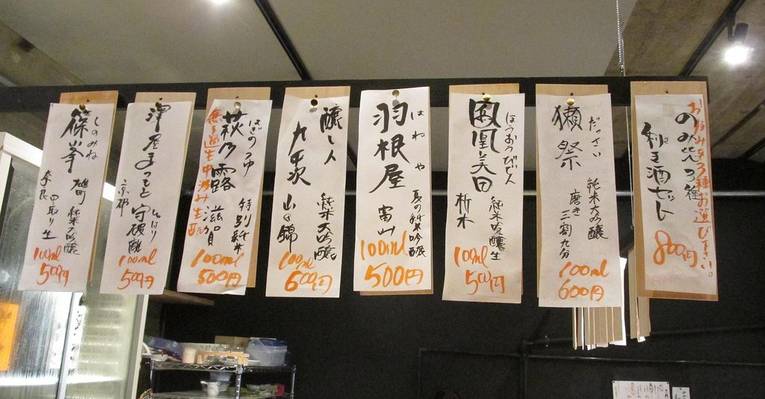 お好み3種お選び下さい!
のみ比べ3種
利き酒セット
800円
だっさい
獺祭
純米大吟醸
磨き三割九分
100ml
600円
ほうおうびでん
鳳凰美田
純米吟醸生
栃木
100ml
500円
はねや
羽根屋
夏の純米吟醸
富山
100ml
500円
醸し人
九平次
純米大吟醸
山田錦
100ml
600円
はぎのつゆ
萩乃露
特別純米
滋賀
無ろ過生中汲み
100ml
500円
澤屋まつもと
守破離
京都
100ml
500円
しのみね
篠峯
雄町
純米大吟醸
中取り生
奈良
100ml
500円